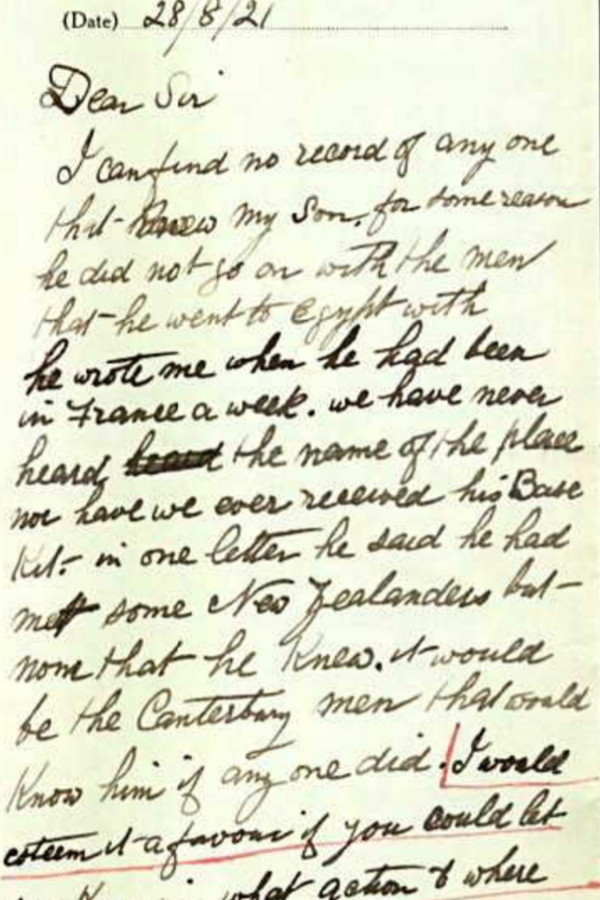 (Date) 28/8/21
Dear Sir
I can find no record of any one
that knew my Son. for some reason
he did not go on with the men
that he went to Egypt with
he wrote me when he had been
in France a week. we have never
heard heard the name of the place
nor have we ever received his Base
Kit. in one letter he said he had
met some New Zealanders but
none that he knew. it would
be the Canterbury men that would
know him if any one did. I would
esteem it a favour if you could let
know in what action & where